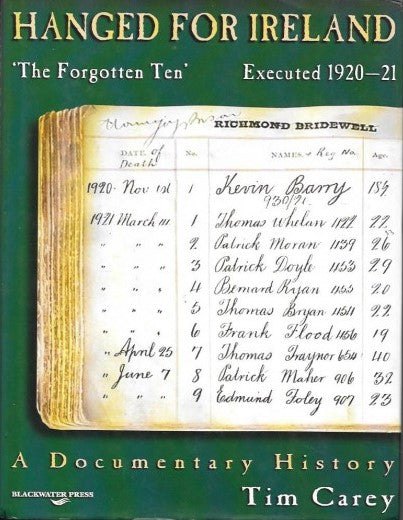 HANGED FOR IRELAND
'The Forgotten Ten' Executed 1920–21
RICHMOND BRIDEWELL
DATE of Death No. NAMES. & Reg No. Age.
1920 Nov 1st 1 Kevin Barry 18½
930/21.
1921 March 14 1 Thomas Whelan 1122 22
" " " 2 Patrick Moran 1139 26
" " " 3 Patrick Doyle 1153 29
" " " 4 Bernard Ryan 1155 20
" " " 5 Thomas Bryan 1154 22
" " " 6 Frank Flood 1156 19
" April 25 7 Thomas Traynor 654 40
" June 7 8 Patrick Maher 906 32
" " " 9 Edmund Foley 907 23
A Documentary History
BLACKWATER PRESS Tim Carey